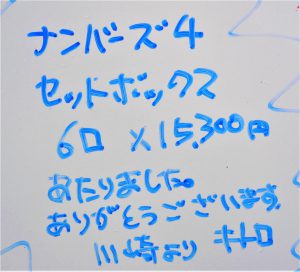 ナンバーズ4
セットボックス
6口 ×15,300円
あたりました。
ありがとうございます。
川崎より